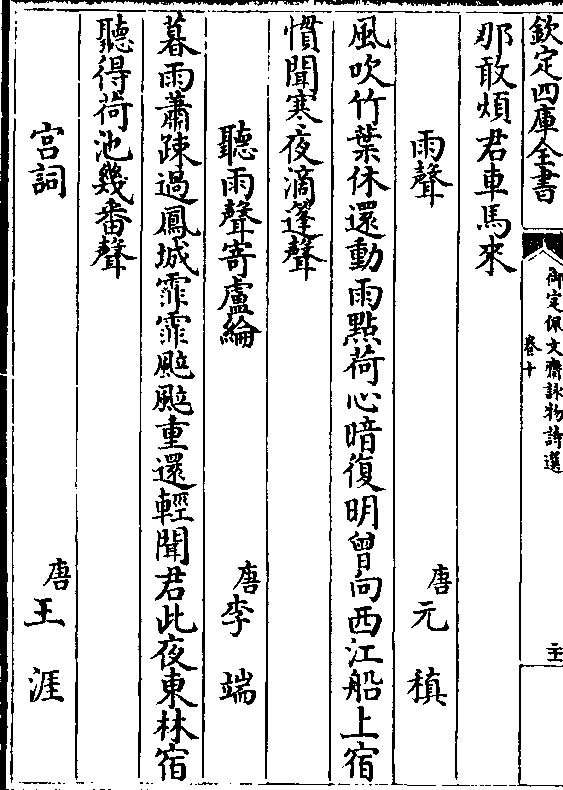 欽定四庫全書
御定佩文齋詠物詩選
卷十
那敢煩君車馬來
雨聲
唐元稹
風吹竹葉休還動雨點荷心暗復明曾向西江船上宿
慣聞寒夜滴篷聲
聽雨聲寄盧綸
唐李端
暮雨蕭疎過鳳城霏霏颭颭重還輕聞君此夜東林宿
聽得荷池幾番聲
宮詞
唐王涯